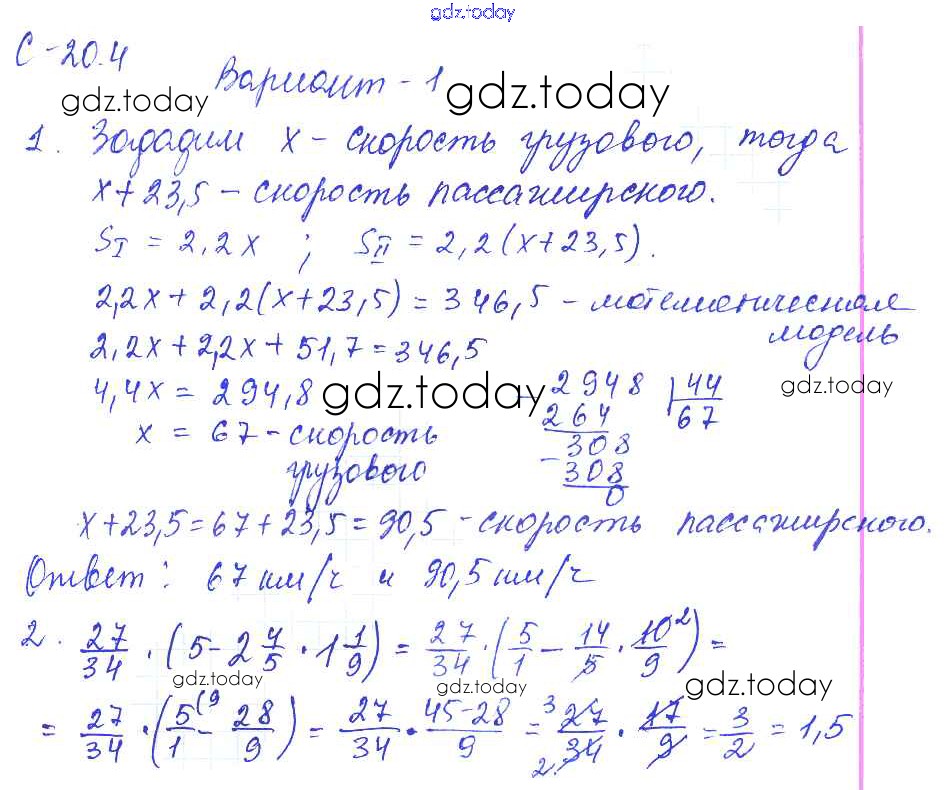 gdz.today
С-20.4
Вариант-1
gdz.today gdz.today
1. Зададим х - скорость грузового, тогда
х+23,5 - скорость пассажирского.
S_I = 2,2х ; S_II = 2,2(х+23,5).
2,2х + 2,2(х+23,5) = 346,5 - математическая
модель
2,2х + 2,2х + 51,7 = 346,5
4,4х = 294,8 gdz.today - 2948 | 44 gdz.today
264 67
х = 67 - скорость - 308
грузового 308
0
х+23,5 = 67+23,5 = 90,5 - скорость пассажирского.
Ответ: 67 км/ч и 90,5 км/ч
2. 27/34 · (5 - 2 4/5 · 1 1/9) = 27/34 · (5/1 - 14/5 · 10²/9) =
gdz.today gdz.today gdz.today
= 27/34 · (5(9/1 - 28/9) = 27/34 · 45-28/9 = 3 27/2 34 · 17/9 = 3/2 = 1,5